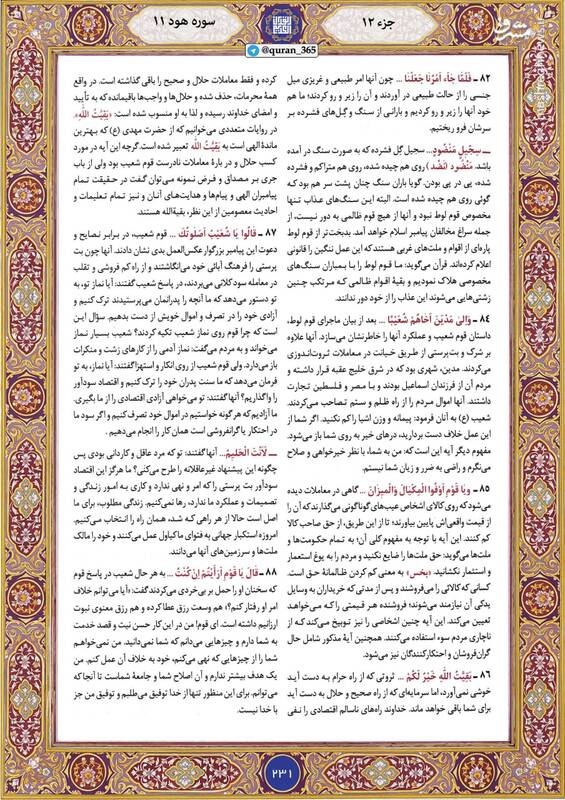 جزء ۱۲
سوره هود ۱۱
@quran_365
مشرق
۸۲ ـ فَلَمّا جاءَ اَمْرُنا جَعَلْنا ... چون آنها امر طبیعی و غریزی میل
جنسی را از حالت طبیعی در آوردند و آن را زیر و رو کردند؛ ما هم
خود آنها را زیر و رو کردیم و بارانی از سنگ و گِل‌های فشرده بر
سرشان فرو ریختیم.
ـــ سِجّیلٍ مَنْضُودٍ... سجیل گِل فشرده که به صورت سنگ در آمده
باشد. مَنْضُود (نضد) روی هم چیده شده، روی هم متراکم و فشرده
شده، پی در پی بودن. گویا باران سنگ چنان پشت سر هم بود که
گوئی روی هم چیده شده است. البته این سنگ‌های عذاب تنها
مخصوص قوم لوط نبود و آنها از هیچ قوم ظالمی به دور نیست، از
جمله سراغ مخالفان پیامبر اسلام خواهد آمد. بدبخت‌تر از قوم لوط
پاره‌ای از اقوام و ملت‌های غربی هستند که این عمل ننگین را قانونی
اعلام کرده‌اند. قرآن می‌گوید: ما قوم لوط را با بمباران سنگ‌های
مخصوصی هلاک نمودیم و بقیهٔ اقوام ظالمی که مرتکب چنین
زشتی‌هایی می‌شوند این عذاب را از خود دور ندانند.
۸۴ ـ وَالیٰ مَدْیَنَ اَخاهُمْ شُعَیْبًا ... بعد از بیان ماجرای قوم لوط،
داستان قوم شعیب و عملکرد آنها را خاطرنشان می‌سازد. آنها علاوه
بر شرک و بت‌پرستی از طریق خیانت در معاملات ثروت‌اندوزی
می‌کردند. مدین، شهری بود که در شرق خلیج عقبه قرار داشته و
مردم آن از فرزندان اسماعیل بودند و با مصر و فلسطین تجارت
داشتند. آنها اموال مردم را از راه ظلم و ستم تصاحب می‌کردند.
شعیب (ع) به آنان فرمود: پیمانه و وزن اشیا را کم نکنید. اگر شما از
این عمل خلاف دست بردارید، درهای خیر به روی شما باز می‌شود.
مفهوم دیگر آیه این است که: من به شما، با نظر خیرخواهی و صلاح
می‌نگرم و راضی به ضرر و زیان شما نیستم.
۸۵ ـ وَیا قَوْمِ اَوْفُوا الْمِکْیالَ وَالْمِیزانَ ... گاهی در معاملات دیده
می‌شود که روی کالای اشخاص عیب‌های گوناگونی می‌گذارند که آن را
از قیمت واقعی‌اش پایین بیاورند؛ تا از این طریق، از حق صاحب کالا
کم کنند. این آیه با توجه به مفهوم کلی آن؛ به تمام حکومت‌ها و
ملت‌ها می‌گوید: حق ملت‌ها را ضایع نکنید و مردم را به یوغ استعمار
و استثمار نکشانید. «بخس» به معنی کم کردن ظالمانهٔ حق است.
کسانی که کالائی را می‌فروشند و پس از مدتی که خریداران به وسایل
یدکی آن نیازمند می‌شوند؛ فروشنده هر قیمتی را که می‌خواهد
تعیین می‌کند. این آیه چنین اشخاصی را نیز توبیخ می‌کند که از
ناچاری مردم سوء استفاده می‌کنند. همچنین آیهٔ مذکور شامل حال
گران‌فروشان و احتکارکنندگان نیز می‌شود.
۸۶ ـ بَقِیَّتُ اللّٰهِ خَیْرٌ لَکُمْ ... ثروتی که از راه حرام به دست آید
خوشی نمی‌آورد، اما سرمایه‌ای که از راه صحیح و حلال به دست آید
برای شما باقی خواهد ماند. خداوند راه‌های ناسالم اقتصادی را نفی
کرده و فقط معاملات حلال و صحیح را باقی گذاشته است. در واقع
همهٔ محرمات، حذف شده و حلال‌ها و واجب‌ها باقیمانده که به تأیید
و امضای خداوند رسیده و لذا به او منسوب شده است: «بَقِیَّتُ اللّٰه».
در روایات متعددی می‌خوانیم که از حضرت مهدی (ع) که بهترین
ماندهٔ الهی است به بَقِیَّتُ اللّٰه تعبیر شده است. گرچه این آیه در مورد
کسب حلال و در بارهٔ معاملات نادرست قوم شعیب بود ولی از باب
جری بر مصداق و فرض نمونه می‌توان گفت در حقیقت تمام
پیامبران الهی و پیام‌ها و هدایت‌های آنان و نیز تمام تعلیمات و
احادیث معصومین از این نظر، بقیةالله هستند.
۸۷ ـ قالُوا یا شُعَیْبُ اَصَلوتُکَ ... قوم شعیب، در برابر نصایح و
دعوت این پیامبر بزرگوار عکس‌العمل بدی نشان دادند. آنها چون بت
پرستی را فرهنگ آبائی خود می‌انگاشتند و از راه کم فروشی و تقلب
در معامله سود کلانی می‌بردند، در پاسخ شعیب گفتند: آیا نماز تو، به
تو دستور می‌دهد که ما آنچه را پدرانمان می‌پرستیدند ترک کنیم و
آزادی خود را در تصرف و اموال خویش از دست بدهیم. سؤال این
است که چرا قوم روی نماز شعیب تکیه کردند؟ شعیب بسیار نماز
می‌خواند و به مردم می‌گفت: نماز آدمی را از کارهای زشت و منکرات
باز می‌دارد. ولی قوم شعیب از روی انکار و استهزا گفتند: آیا نماز، به تو
فرمان می‌دهد که ما سنت پدران خود را ترک کنیم و اقتصاد سودآور
را واگذاریم؟ آنها گفتند: تو می‌خواهی آزادی اقتصادی را از ما بگیری.
ما آزادیم که هر گونه خواستیم در اموال خود تصرف کنیم و اگر سود ما
در احتکار یا گرانفروشی است همان کار را انجام می‌دهیم.
ـــ لَاَنْتَ الْحَلیمُ... آنها گفتند: تو که مرد عاقل و کاردانی بودی پس
چگونه این پیشنهاد غیرعاقلانه را طرح می‌کنی؟ ما هرگز این اقتصاد
سودآور بت پرستی را که امر و نهی ندارد و کاری به امور زندگی و
تصمیمات و عملکرد ما ندارد، رها نمی‌کنیم. زندگی مطلوب، برای ما
اصل است حالا از هر راهی که شد، همان راه را انتخاب می‌کنیم.
امروزه استکبار جهانی به فتوای ماکیاول عمل می‌کنند و خود را مالک
ملت‌ها و سرزمین‌های آنها می‌دانند.
۸۸ ـ قالَ یا قَوْمِ اَرَاَیْتُمْ اِنْ کُنْتُ ... به هر حال شعیب در پاسخ قوم
که سخنان او را حمل بر بی‌خردی می‌کردند گفت: «آیا می‌توانم خلاف
امر او رفتار کنم؟» هم وسعت رزق عطا کرده و هم رزق معنوی نبوت
ارزانیم داشته است. ای قوم! من در این کار حسن نیت و قصد خدمت
به شما دارم و چیزهایی می‌دانم که شما نمی‌دانید. من نمی‌خواهم
شما را از چیزهایی که نهی می‌کنم، خود به خلاف آن عمل کنم. من
یک هدف بیشتر ندارم و آن اصلاح شما و جامعهٔ شماست تا آنجا که
می‌توانم. برای این منظور تنها از خدا توفیق می‌طلبم و توفیق من جز
با خدا نیست.
۲۳۱